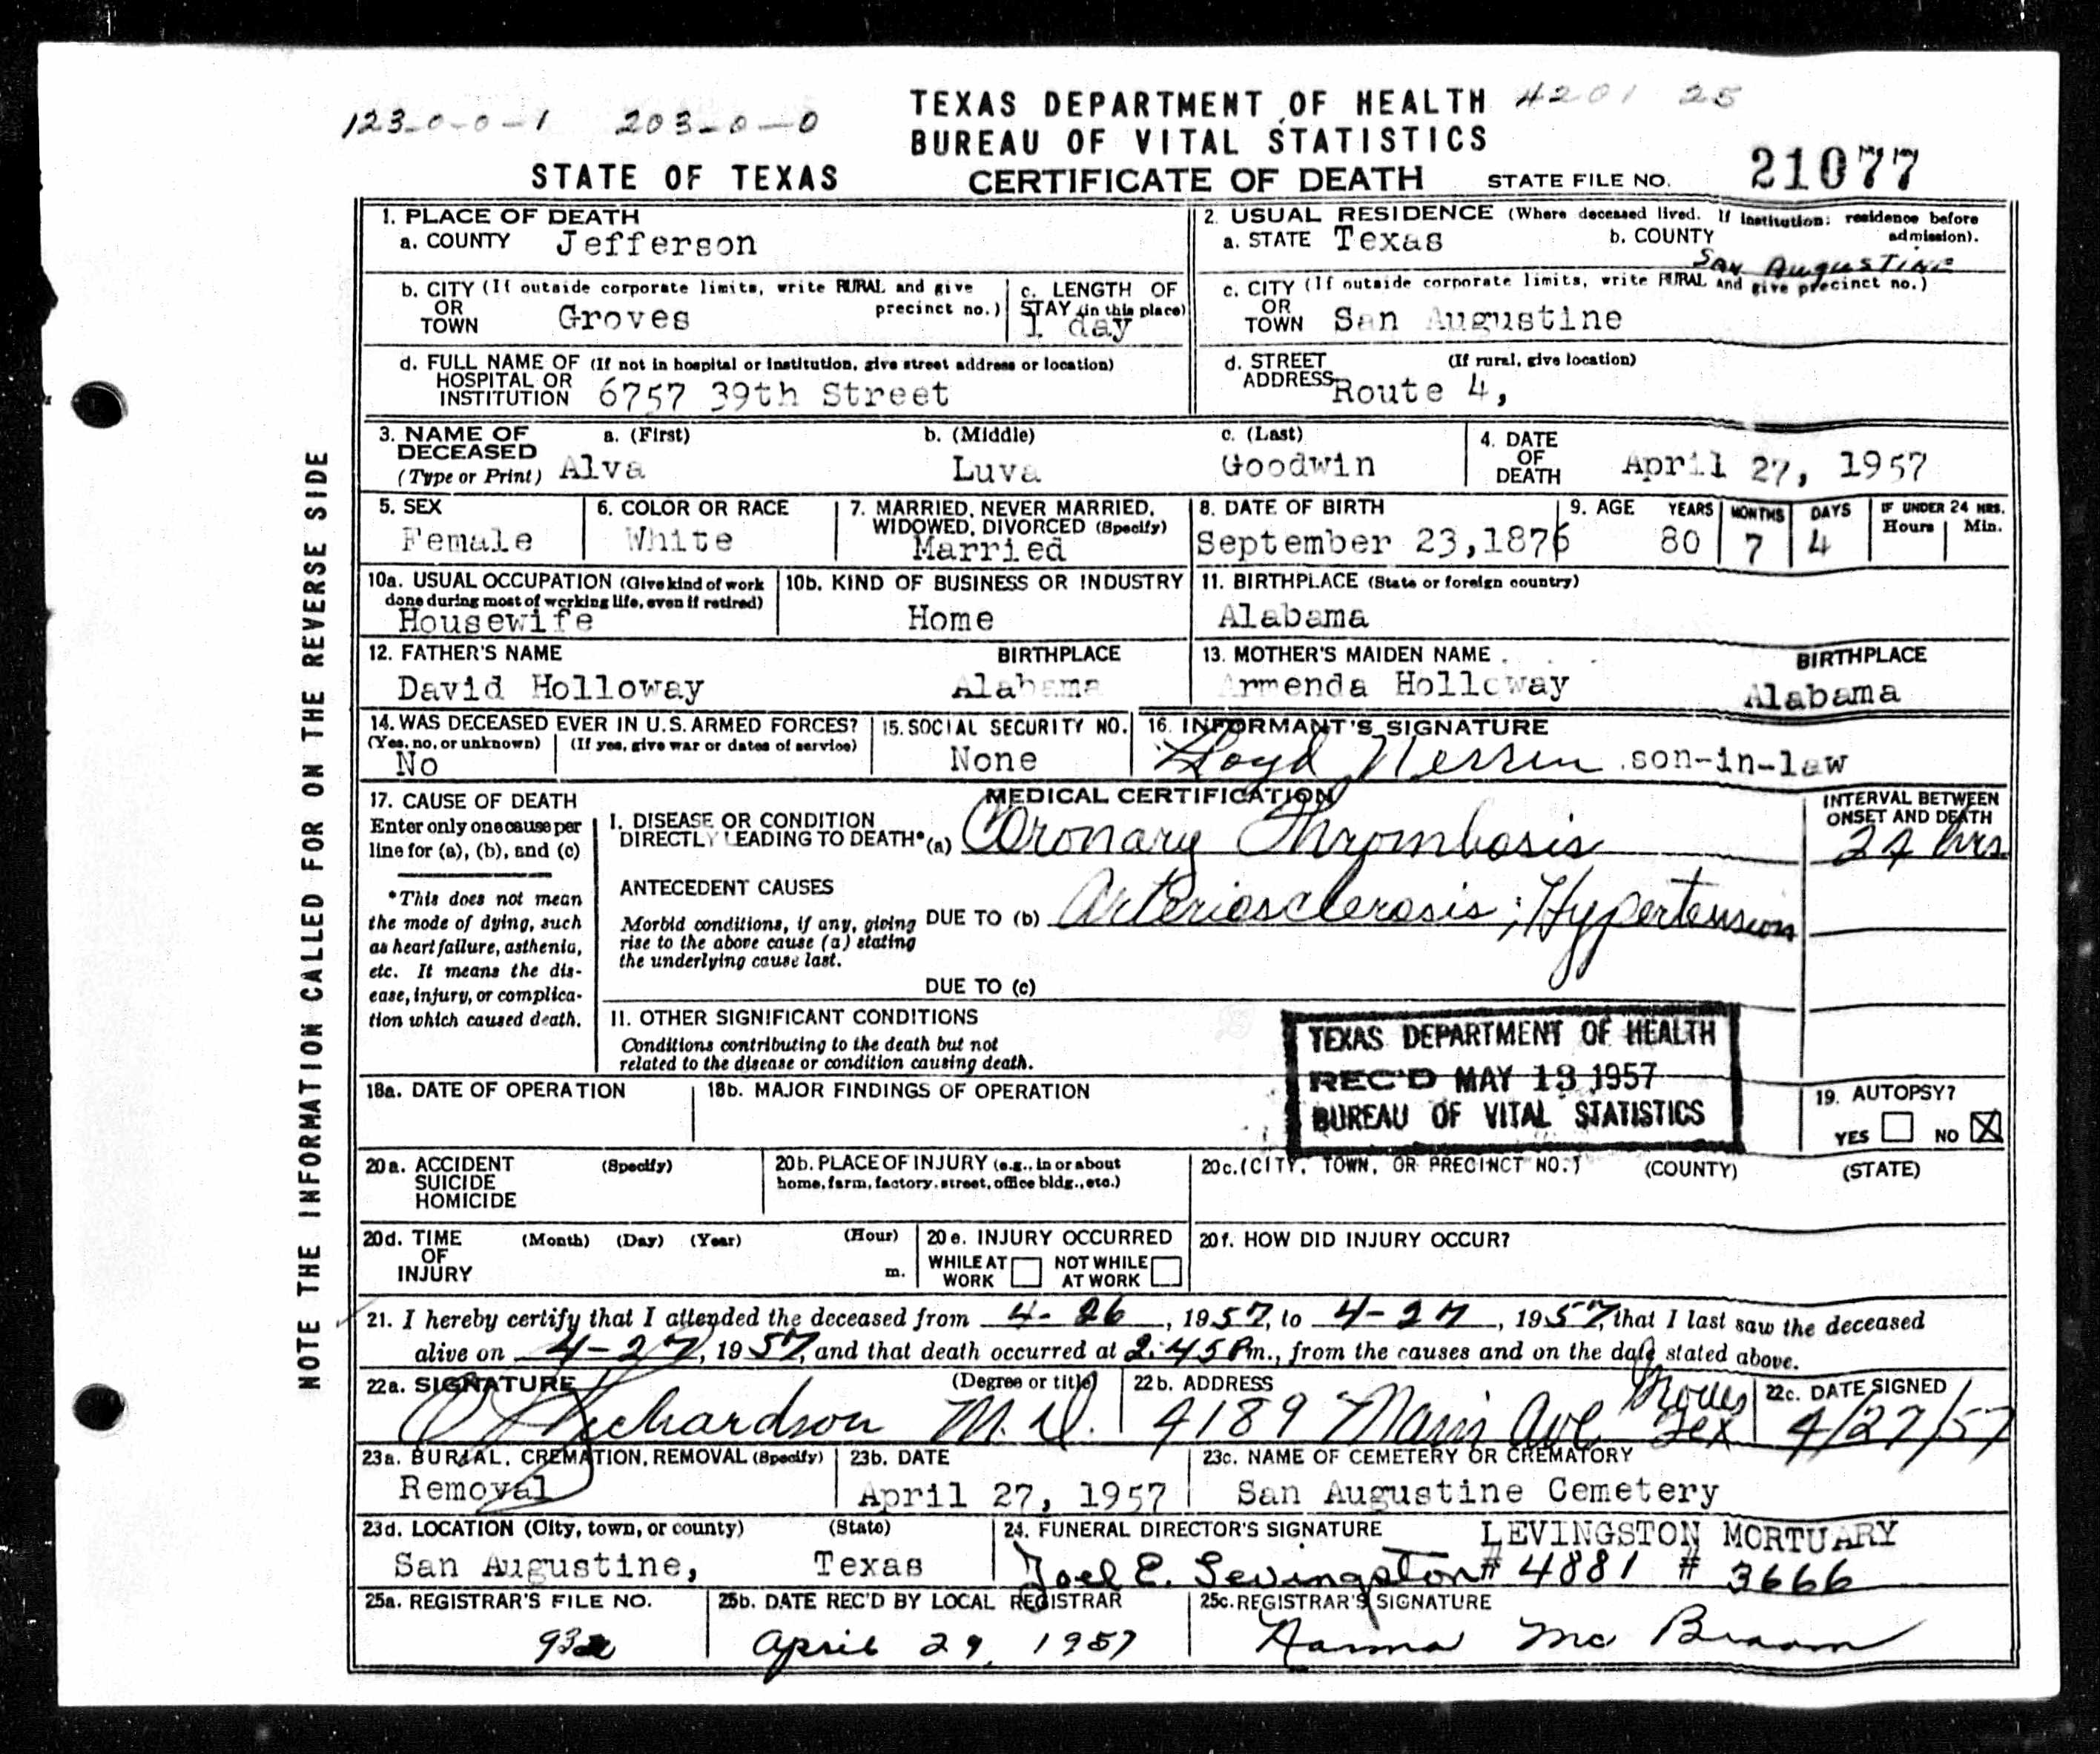 123-0-0-1 203-0-0 TEXAS DEPARTMENT OF HEALTH 4201 25
BUREAU OF VITAL STATISTICS
STATE OF TEXAS CERTIFICATE OF DEATH STATE FILE NO. 21077
NOTE THE INFORMATION CALLED FOR ON THE REVERSE SIDE
1. PLACE OF DEATH
a. COUNTY Jefferson
2. USUAL RESIDENCE (Where deceased lived. If institution: residence before admission).
a. STATE Texas b. COUNTY San Augustine
b. CITY (If outside corporate limits, write RURAL and give precinct no.)
OR TOWN Groves
c. LENGTH OF STAY (in this place)
1 day
c. CITY (If outside corporate limits, write RURAL and give precinct no.)
OR TOWN San Augustine
d. FULL NAME OF (If not in hospital or institution, give street address or location)
HOSPITAL OR INSTITUTION 6757 39th Street
d. STREET ADDRESS (If rural, give location)
Route 4,
3. NAME OF DECEASED (Type or Print)
a. (First) b. (Middle) c. (Last)
Alva Luva Goodwin
4. DATE OF DEATH April 27, 1957
5. SEX
Female
6. COLOR OR RACE
White
7. MARRIED, NEVER MARRIED, WIDOWED, DIVORCED (Specify)
Married
8. DATE OF BIRTH
September 23,1876
9. AGE YEARS MONTHS DAYS IF UNDER 24 HRS. Hours Min.
80 7 4
10a. USUAL OCCUPATION (Give kind of work done during most of working life, even if retired)
Housewife
10b. KIND OF BUSINESS OR INDUSTRY
Home
11. BIRTHPLACE (State or foreign country)
Alabama
12. FATHER'S NAME BIRTHPLACE
David Holloway Alabama
13. MOTHER'S MAIDEN NAME BIRTHPLACE
Armenda Holloway Alabama
14. WAS DECEASED EVER IN U.S. ARMED FORCES?
(Yes, no, or unknown) (If yes, give war or dates of service)
No
15. SOCIAL SECURITY NO.
None
16. INFORMANT'S SIGNATURE
Loyd Nerren son-in-law
17. CAUSE OF DEATH
Enter only one cause per line for (a), (b), and (c)
*This does not mean the mode of dying, such as heart failure, asthenia, etc. It means the disease, injury, or complication which caused death.
MEDICAL CERTIFICATION
I. DISEASE OR CONDITION
DIRECTLY LEADING TO DEATH* (a) Coronary Thrombosis
INTERVAL BETWEEN ONSET AND DEATH
24 hrs
ANTECEDENT CAUSES
Morbid conditions, if any, giving rise to the above cause (a) stating the underlying cause last.
DUE TO (b) Arteriosclerosis; Hypertension
DUE TO (c)
II. OTHER SIGNIFICANT CONDITIONS
Conditions contributing to the death but not related to the disease or condition causing death.
TEXAS DEPARTMENT OF HEALTH
REC'D MAY 13 1957
BUREAU OF VITAL STATISTICS
18a. DATE OF OPERATION
18b. MAJOR FINDINGS OF OPERATION
19. AUTOPSY?
YES NO X
20a. ACCIDENT SUICIDE HOMICIDE (Specify)
20b. PLACE OF INJURY (e.g., in or about home, farm, factory, street, office bldg., etc.)
20c. (CITY, TOWN, OR PRECINCT NO.) (COUNTY) (STATE)
20d. TIME OF INJURY (Month) (Day) (Year) (Hour) m.
20e. INJURY OCCURRED
WHILE AT WORK NOT WHILE AT WORK
20f. HOW DID INJURY OCCUR?
21. I hereby certify that I attended the deceased from 4-26, 1957, to 4-27, 1957, that I last saw the deceased
alive on 4-27, 1957, and that death occurred at 2:45 Pm., from the causes and on the date stated above.
22a. SIGNATURE (Degree or title)
Richardson M.D.
22b. ADDRESS
4189 Main Ave Groves Tex
22c. DATE SIGNED
4/27/57
23a. BURIAL, CREMATION, REMOVAL (Specify)
Removal
23b. DATE
April 27, 1957
23c. NAME OF CEMETERY OR CREMATORY
San Augustine Cemetery
23d. LOCATION (City, town, or county) (State)
San Augustine, Texas
24. FUNERAL DIRECTOR'S SIGNATURE LEVINGSTON MORTUARY
Joel E. Levingston # 4881 # 3666
25a. REGISTRAR'S FILE NO.
25b. DATE REC'D BY LOCAL REGISTRAR
April 29, 1957
25c. REGISTRAR'S SIGNATURE